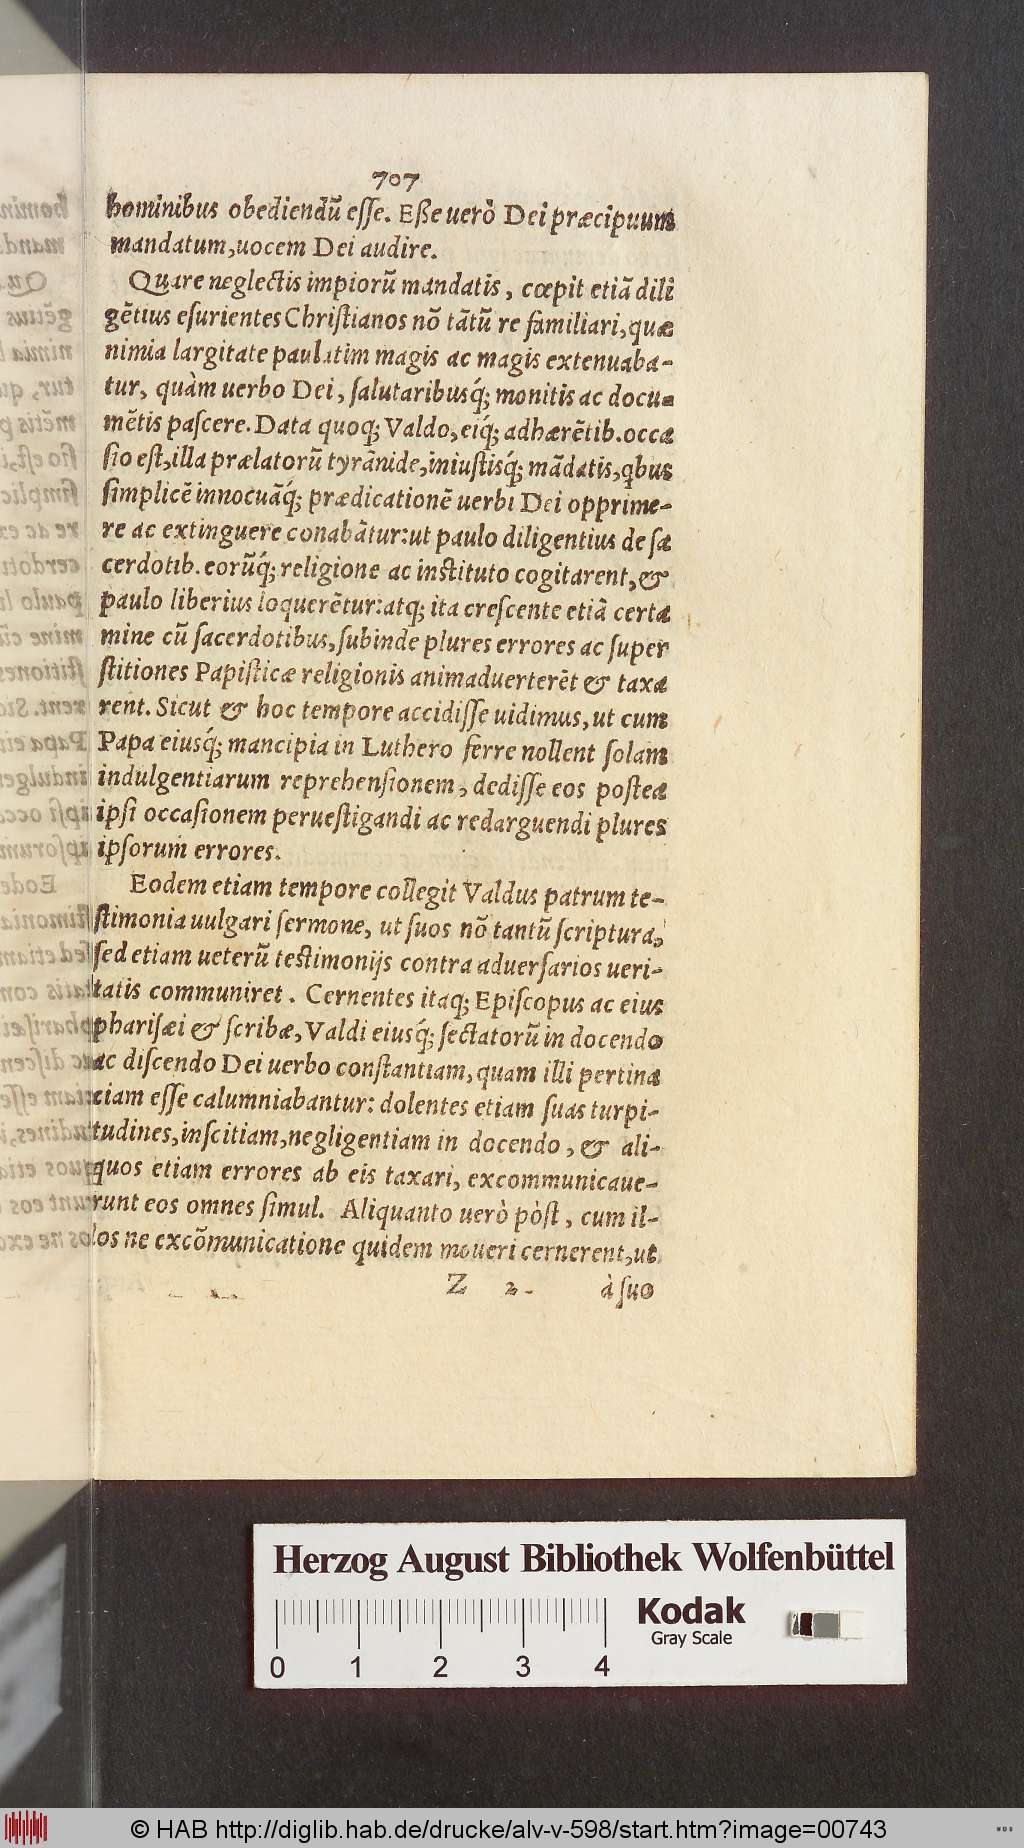 707
hominibus obediendũ eſſe. Eße uerò Dei præcipuum
mandatum, uocem Dei audire.
Quare neglectis impiorũ mandatis, cœpit etiã dili
gẽtius eſurientes Chriſtianos nõ tãtũ re familiari, quæ
nimia largitate paulatim magis ac magis extenuaba-
tur, quàm uerbo Dei, ſalutaribusq́; monitis ac docu-
mẽtis paſcere. Data quoq; Valdo, eiq́; adhærẽtib. occa
ſio eſt, illa prælatorũ tyrãnide, iniuſtisq́; mãdatis, qbus
ſimplicẽ innocuãq́; prædicationẽ uerbi Dei opprime-
re ac extinguere conabãtur: ut paulo diligentius de ſa
cerdotib. eorũq́; religione ac inſtituto cogitarent, &
paulo liberius loquerẽtur: atq; ita creſcente etiã certa
mine cũ ſacerdotibus, ſubinde plures errores ac ſuper
ſtitiones Papiſticæ religionis animaduerterẽt & taxa
rent. Sicut & hoc tempore accidiſſe uidimus, ut cum
Papa eiusq́; mancipia in Luthero ferre nollent ſolam
indulgentiarum reprehenſionem, dediſſe eos poſtea
ipſi occaſionem perueſtigandi ac redarguendi plures
ipſorum errores.
Eodem etiam tempore collegit Valdus patrum te-
ſtimonia uulgari ſermone, ut ſuos nõ tantũ ſcriptura,
ſed etiam ueterũ teſtimonijs contra aduerſarios ueri-
tatis communiret. Cernentes itaq; Epiſcopus ac eius
phariſæi & ſcribæ, Valdi eiusq́; ſectatorũ in docendo
ac diſcendo Dei uerbo conſtantiam, quam illi pertina
ciam eſſe calumniabantur: dolentes etiam ſuas turpi-
tudines, inſcitiam, negligentiam in docendo, & ali-
quos etiam errores ab eis taxari, excommunicaue-
runt eos omnes ſimul. Aliquanto uerò pòſt, cum il-
los ne excõmunicatione quidem moueri cernerent, ut
Z 2 à ſuo
Herzog August Bibliothek Wolfenbüttel
0 1 2 3 4
Kodak
Gray Scale
© HAB http://diglib.hab.de/drucke/alv-v-598/start.htm?image=00743